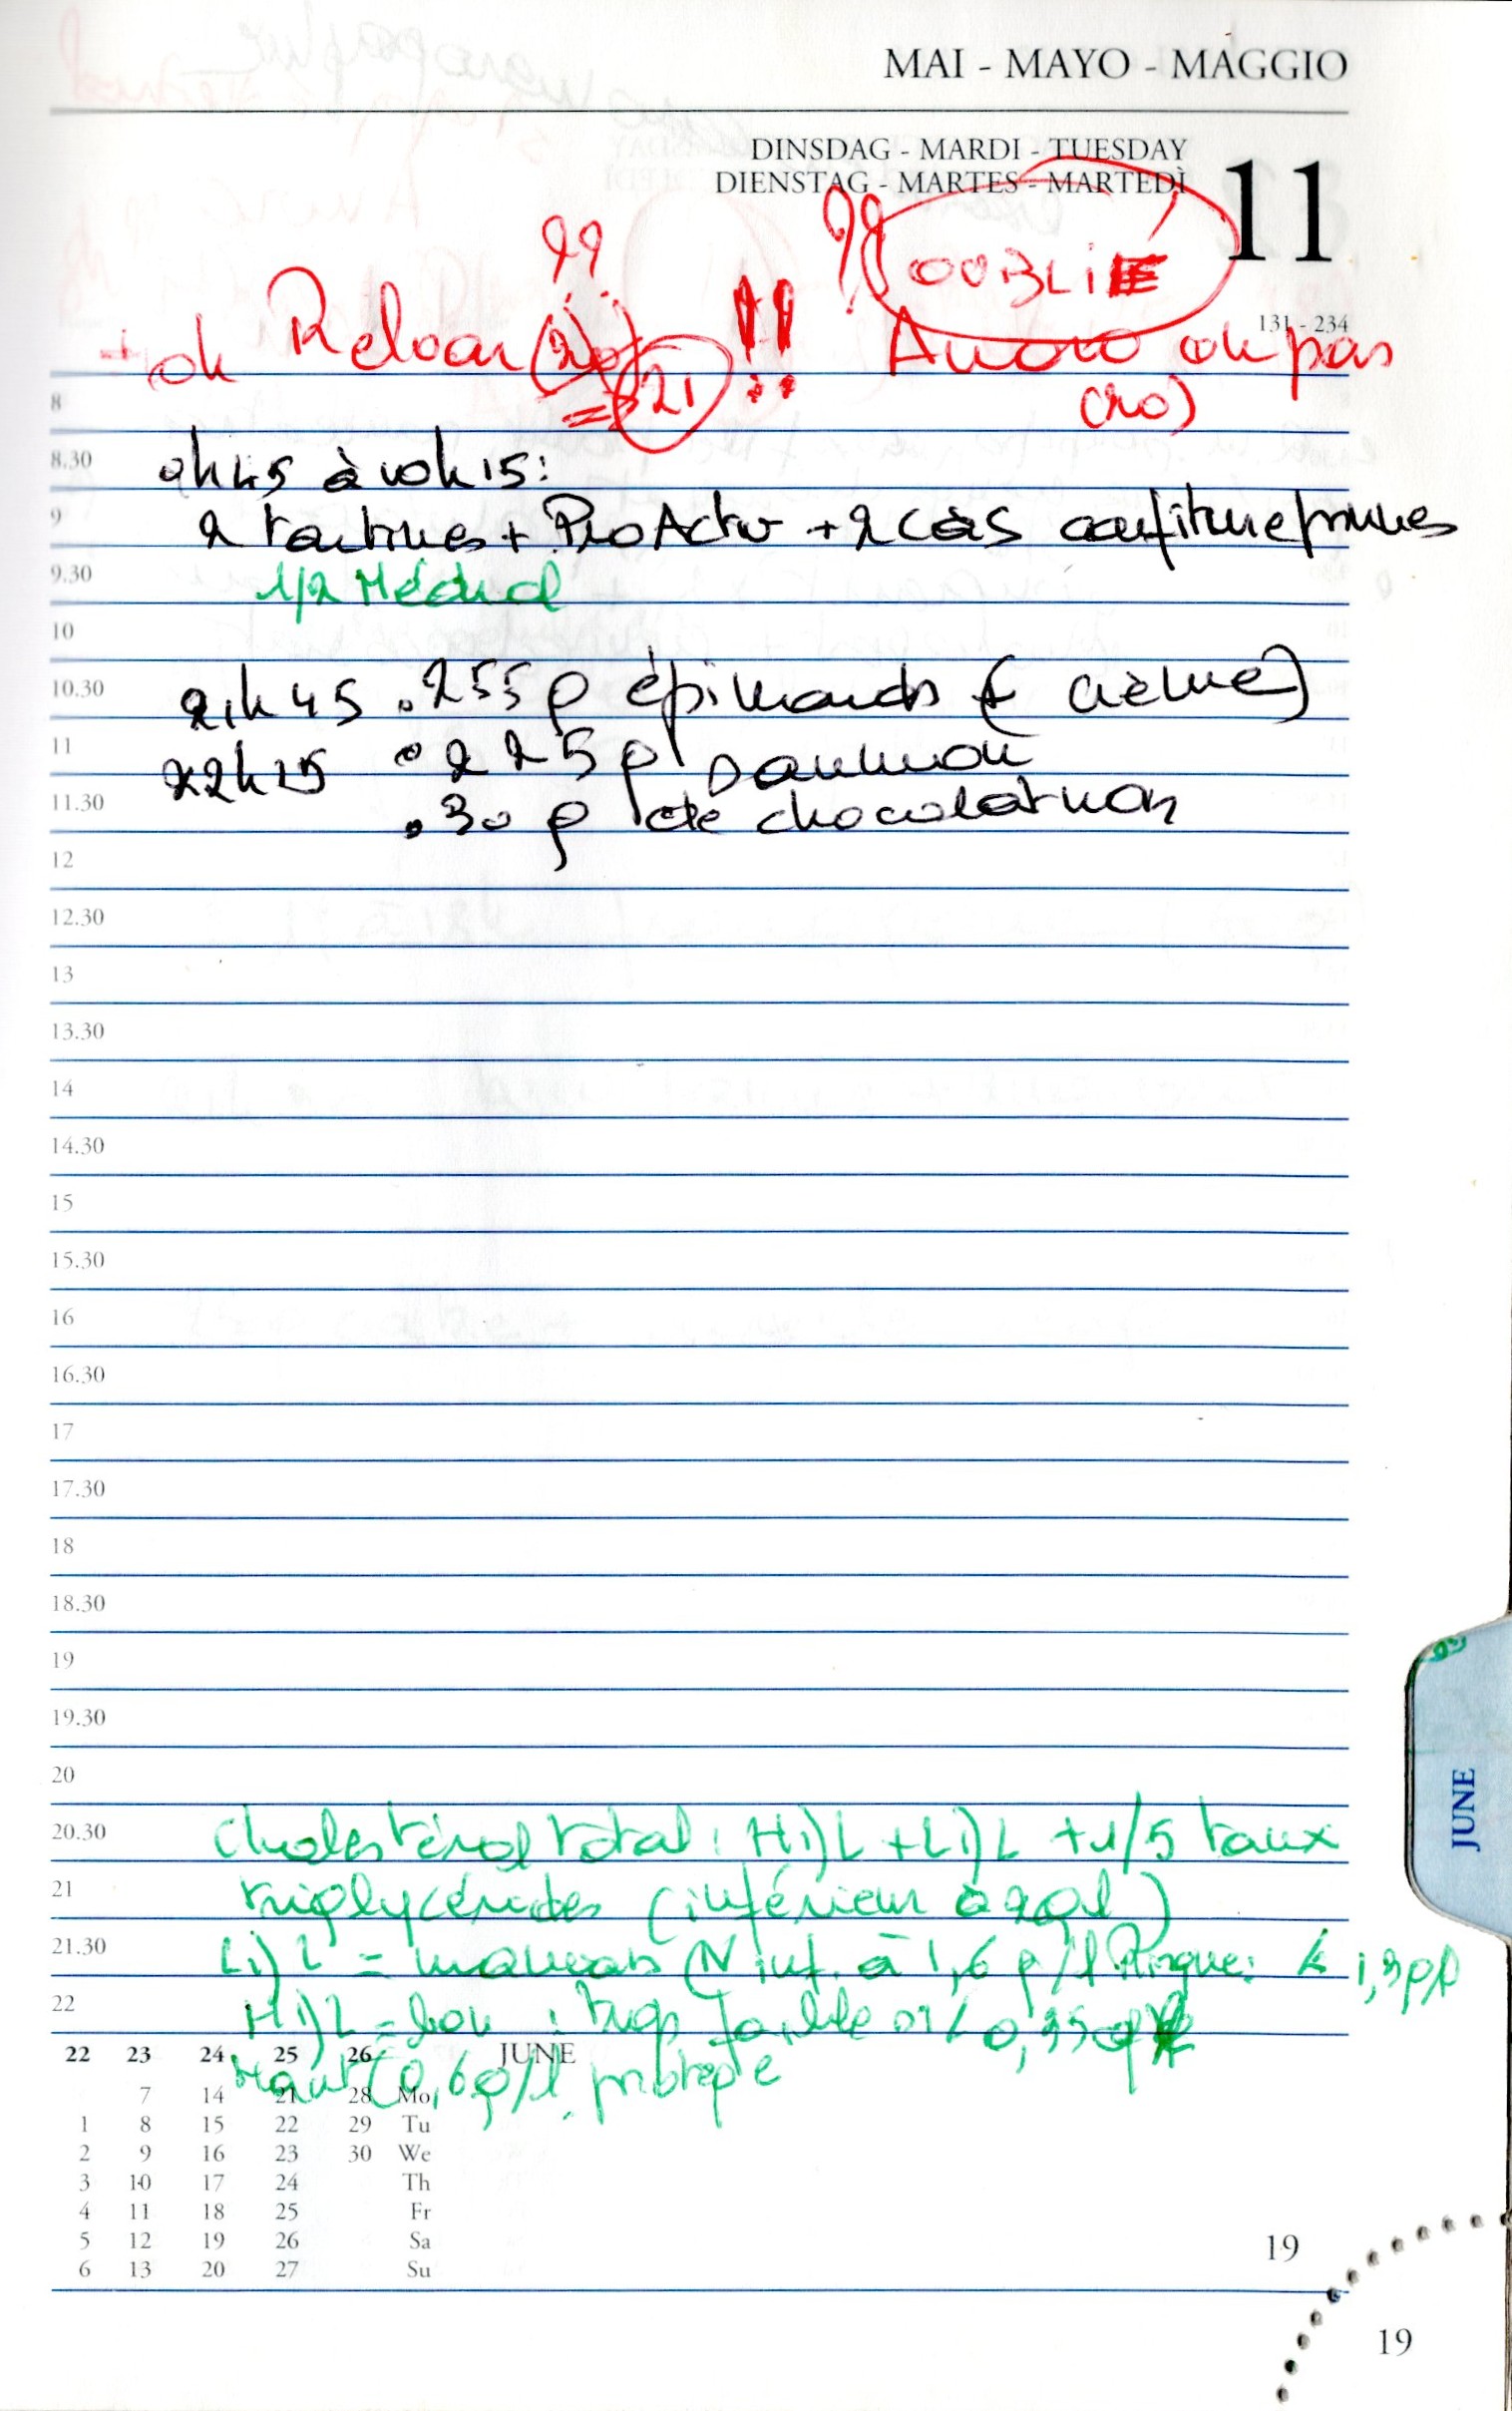 MAI - MAYO - MAGGIO
DINSDAG - MARDI - TUESDAY
DIENSTAG - MARTES - MARTEDÌ
11
OUBLIÉ
131 - 234
ok (20) => 21 !! ok pas
(20)
8
8.30
à 10h15:
9
2 tartines + ProActiv + 2 càs confiture prunes
9.30
1/2 Médrol
10
10.30
21h45 . 255 g épinards (+ crème)
11
22h15 . 225 g saumon
11.30
. 30 g de chocolat noir
12
12.30
13
13.30
14
14.30
15
15.30
16
16.30
17
17.30
18
18.30
19
19.30
20
20.30
Cholestérol total : HDL + LDL + 1/5 taux
21
triglycérides (inférieur à 2g/l)
21.30
LDL = mauvais (N inf. à 1,6 g/l
22
HDL = bon : trop faible si < 0,35 g/l
Haut 0,6g/l protège
22 23 24 25 26 JUNE
7 14 21 28 Mo
1 8 15 22 29 Tu
2 9 16 23 30 We
3 10 17 24 Th
4 11 18 25 Fr
5 12 19 26 Sa
6 13 20 27 Su
JUNE
19
19